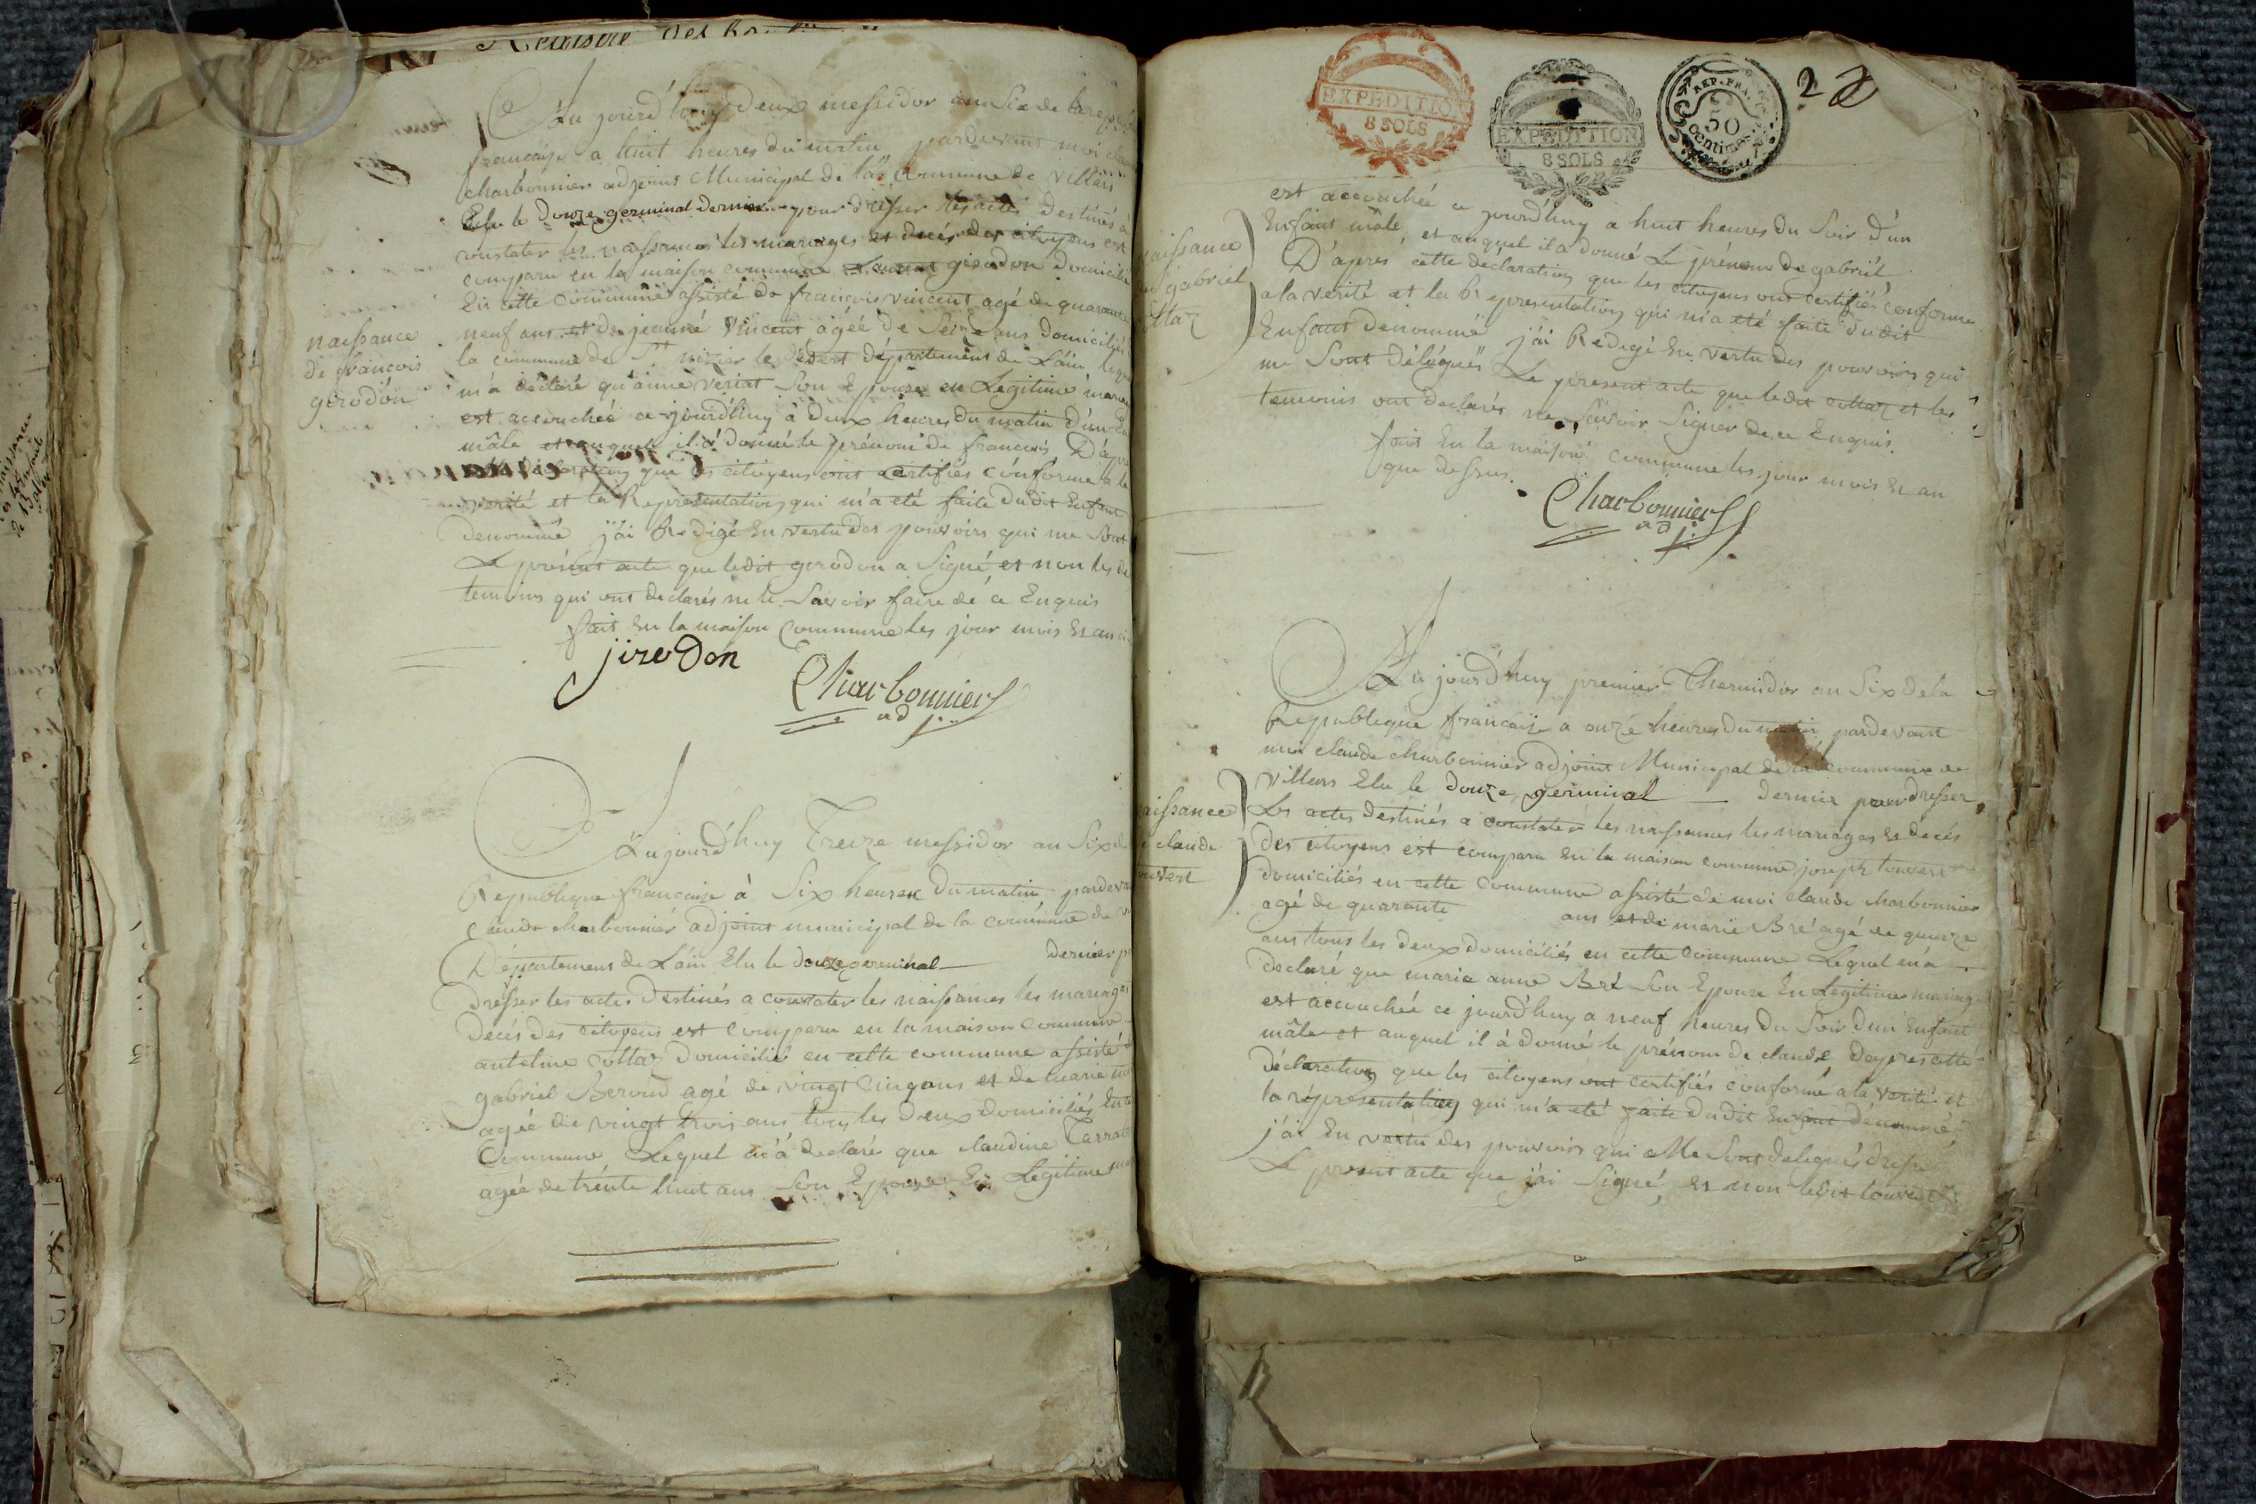 Aujourd'huy deux messidor an Six de la rep
francaise a huit heures du matin pardevant moi
charbonnier adjoint Municipal de la Commune de Villars
Elu le Douze germinal dernier pour dresser les actes Destinés à
constater les naissances les mariages et decés des citoyens est
comparu en la maison commune Laurent girodon Domicilié
En cette Commune assisté de francois vincent agé de quarante
neuf ans et de jeanne Vincent agée de Seize ans Domiciliés
la commune de St nizier le desert département de L'ain
m'a déclaré qu'anne veriat Son Epouse en Legitime
est accouchée ce jourd'huy à Deux heures du matin d'un
mâle et auquel il a donné le prénom de francois D'apr
declaration que les citoyens ont certifiés conforme à la
verité et la Representation qui m'a été faite dudit Enfant
denommé j'ai Redigé En vertu des pouvoirs qui me Sont
Le présent acte que ledit girodon a Signé et non les
temoins qui ont declarés ne le Savoir faire de ce Enquis
fait En la maison Commune les jour mois Et an
jirodon
Charbonnier
adj.
naissance
de francois
girodon
Aujourd'huy Treize messidor an Six
Republique francaise à Six heures du matin pardev
Claude charbonnier adjoint municipal de la commune de
Département de L'ain Elu le douze germinal dernier p
Dresser les actes Destinés a constater les naissances les mariages
Decés des citoyens est comparu en la maison commune
antelme collaz Domicilié en cette commune assisté
gabriel Beroud agé de vingt Cinq ans et de marie
agée de vingt trois ans tous les deux domiciliés
Commune Lequel m'a declaré que claudine
agée de trente huit ans Son Epouse En Legitime
EXPEDITION
8 SOLS
EXPEDITION
8 SOLS
REP. FRA.
50
Centimes
2
est accouchée ce jourd'huy a huit heures du Soir d'un
Enfant mâle et auquel il a donné Le prénom de gabriel
D'après cette déclaration que les citoyens ont certifiés conforme
a la verité et la Representation qui m'a eté faite Dudit
Enfant denommé j'ai Redigé En vertu des pouvoirs qui
me Sont délégués Le present acte que ledit collaz et les
temoins ont declarés ne Savoir Signer de ce Enquis.
fait En la maison commune les jour mois Et an
que dessus.
Charbonnier
adj.
aissance
gabriel
llaz
Aujourd'huy premier Thermidor an Six de la
Republique francaise a onze heures du matin pardevant
moi claude charbonnier adjoint Municipal de la commune de
Villars Elu le douze germinal dernier pour dresser
Les actes destinés a constater les naissances les mariages Et decés
des citoyens est comparu En la maison commune joseph touvert
domiciliés en cette Commune assisté de moi claude charbonnier
agé de quarante ans et de marie Bré agé de quinze
ans tous les deux domiciliés en cette commune Lequel m'a
declaré que marie anne Bré Son Epouse En Legitime mariage
est accouchée ce jourd'huy a neuf heures du Soir d'un Enfant
mâle et auquel il à donné le prénom de claude Depres cette
déclaration que les citoyens ont certifiés conforme a la verité et
la représentation qui m'a eté faite dudit Enfant dénommé
j'ai En vertu des pouvoirs qui Me Sont delegués dressé
Le present acte que j'ai Signé, Et non ledit touvert
aissance
claude
uvert